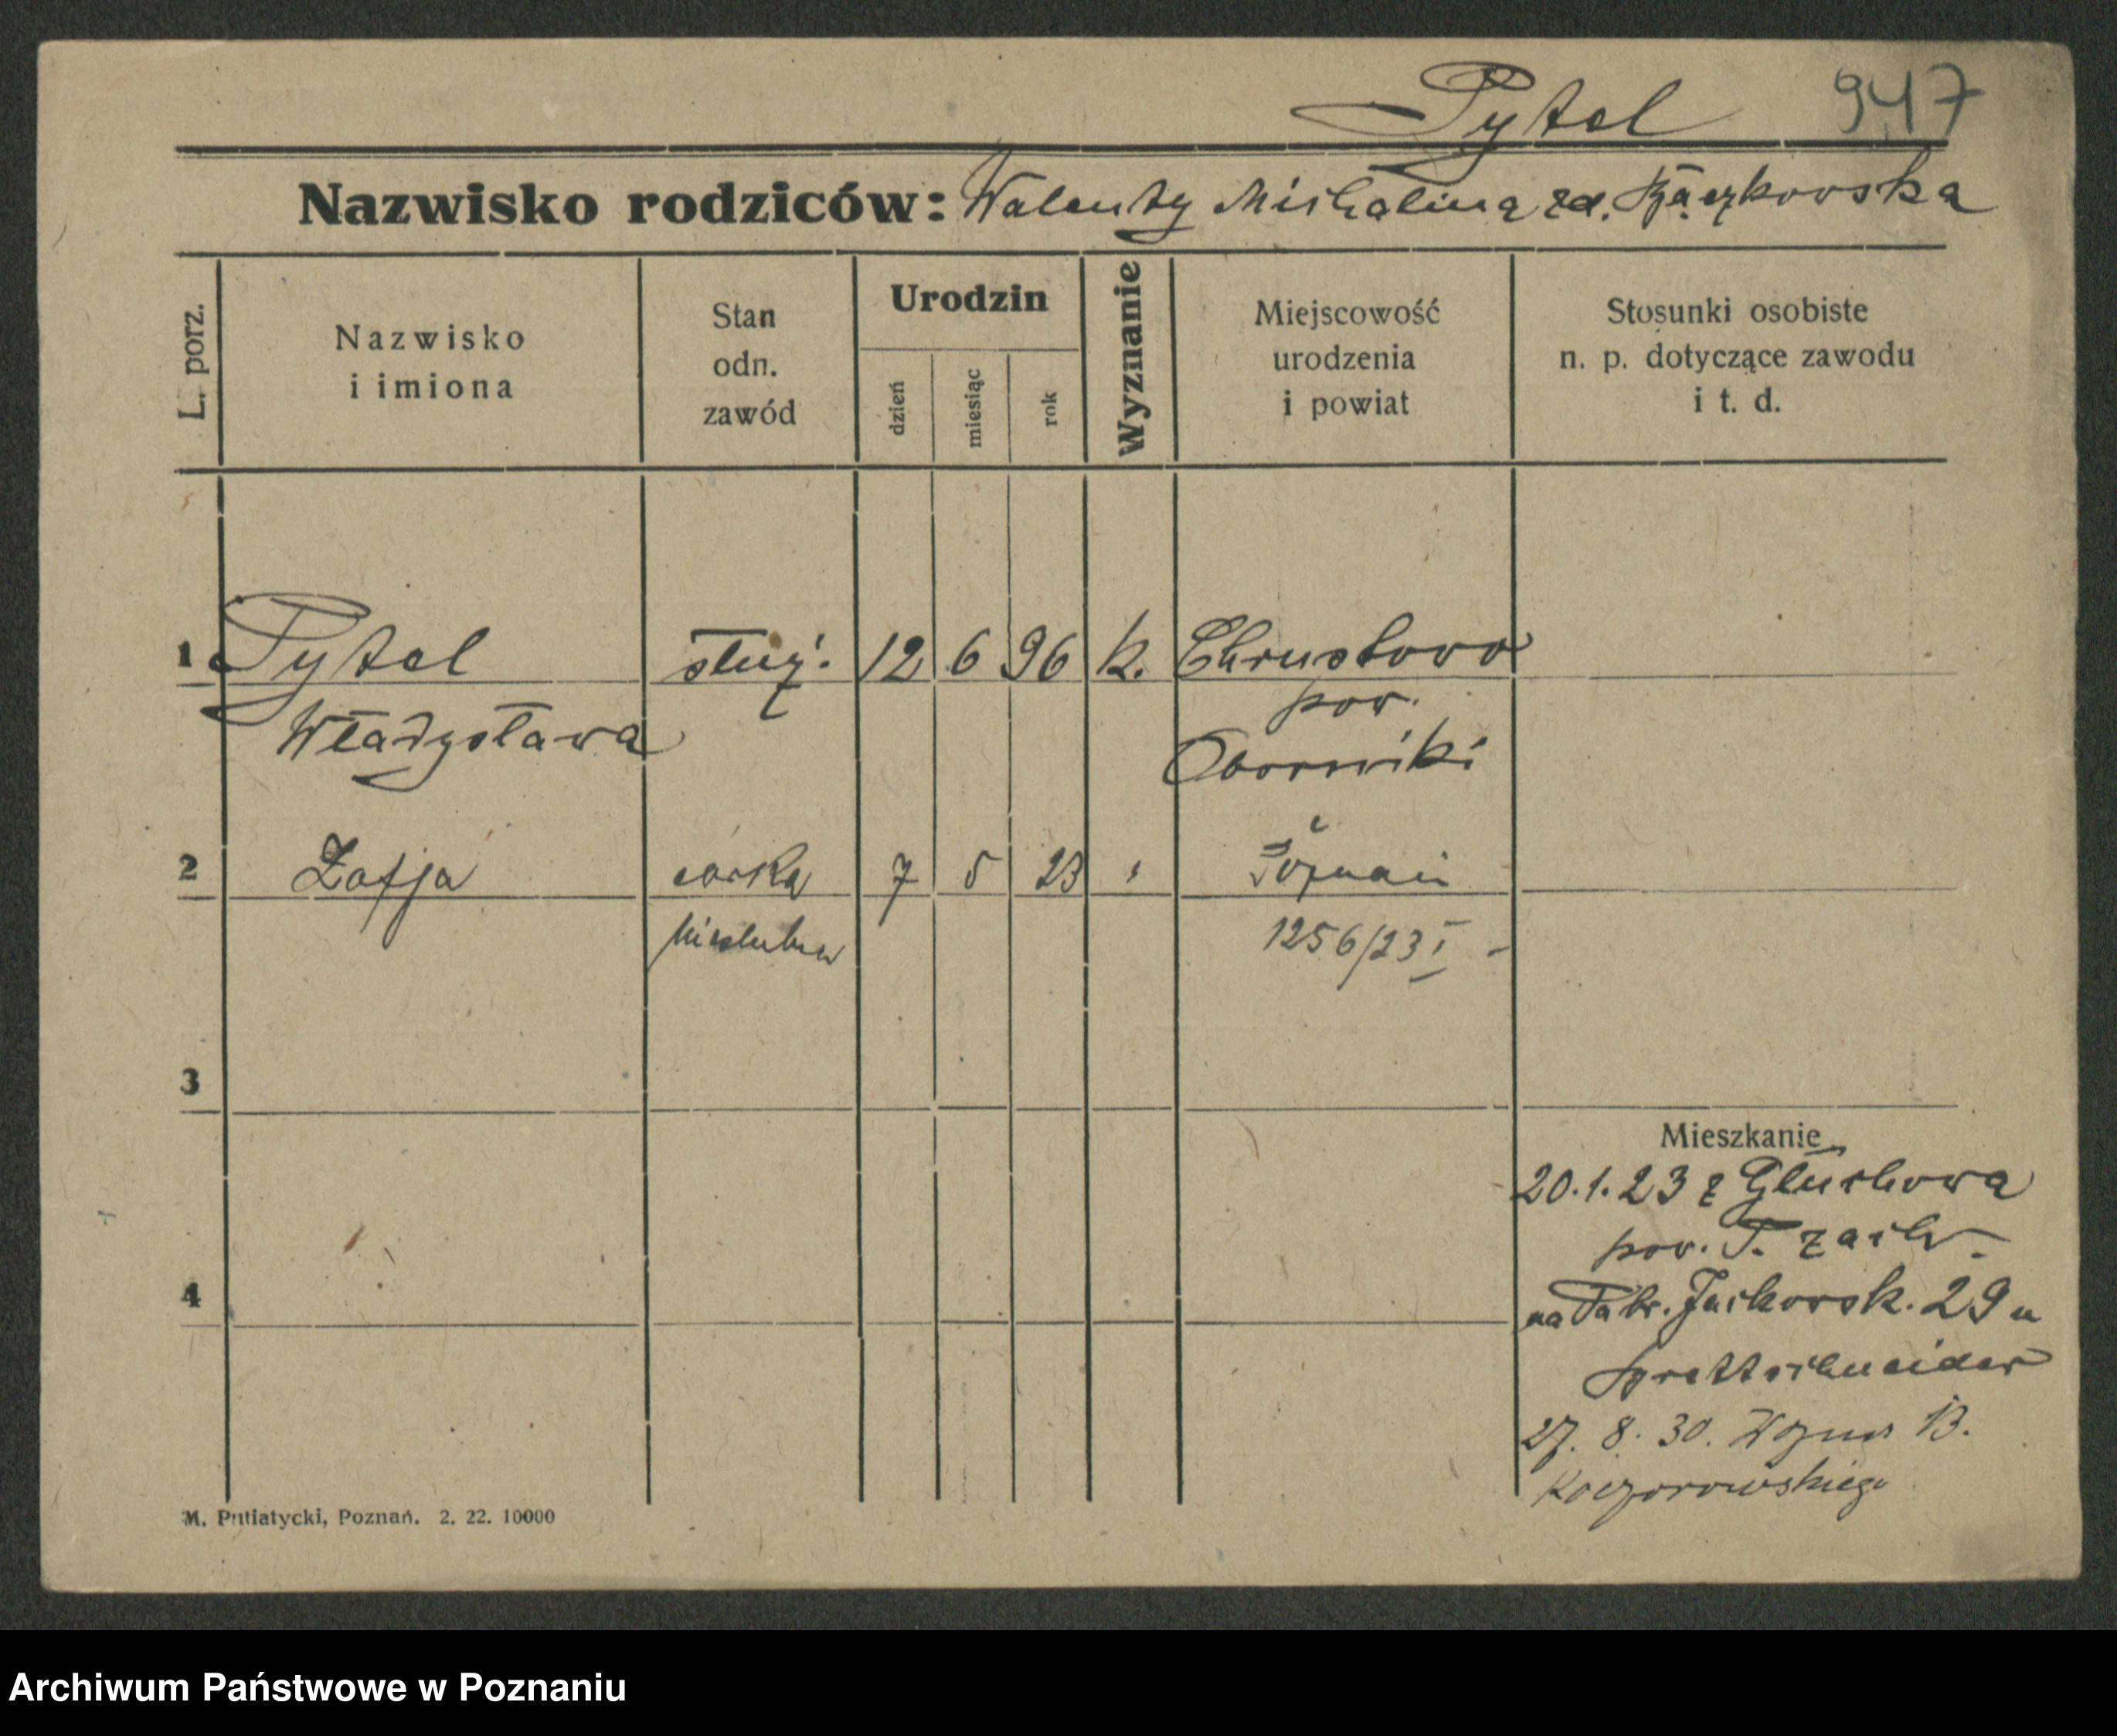 Pytel 947
Nazwisko rodziców: Walenty Michalina zd. Bączkowska
L. porz.
Nazwisko
i imiona
Stan
odn.
zawód
Urodzin
dzień
miesiąc
rok
Wyznanie
Miejscowość
urodzenia
i powiat
Stosunki osobiste
n. p. dotyczące zawodu
i t. d.
1 Pytel służ. 12 6 96 k. Chrustowo
Władysława pow.
Oborniki
2 Zofja córka 7 5 23 " Poznań
nieślubna 1256/23 I -
3
Mieszkanie
20.1.23 z Głuchowa
pow. P. zach.
4
na Fabr. Jackowsk. 29 u
Brettschneider
27. 8. 30. 13.
Koczorowskiego
M. Putiatycki, Poznań. 2. 22. 10000
Archiwum Państwowe w Poznaniu